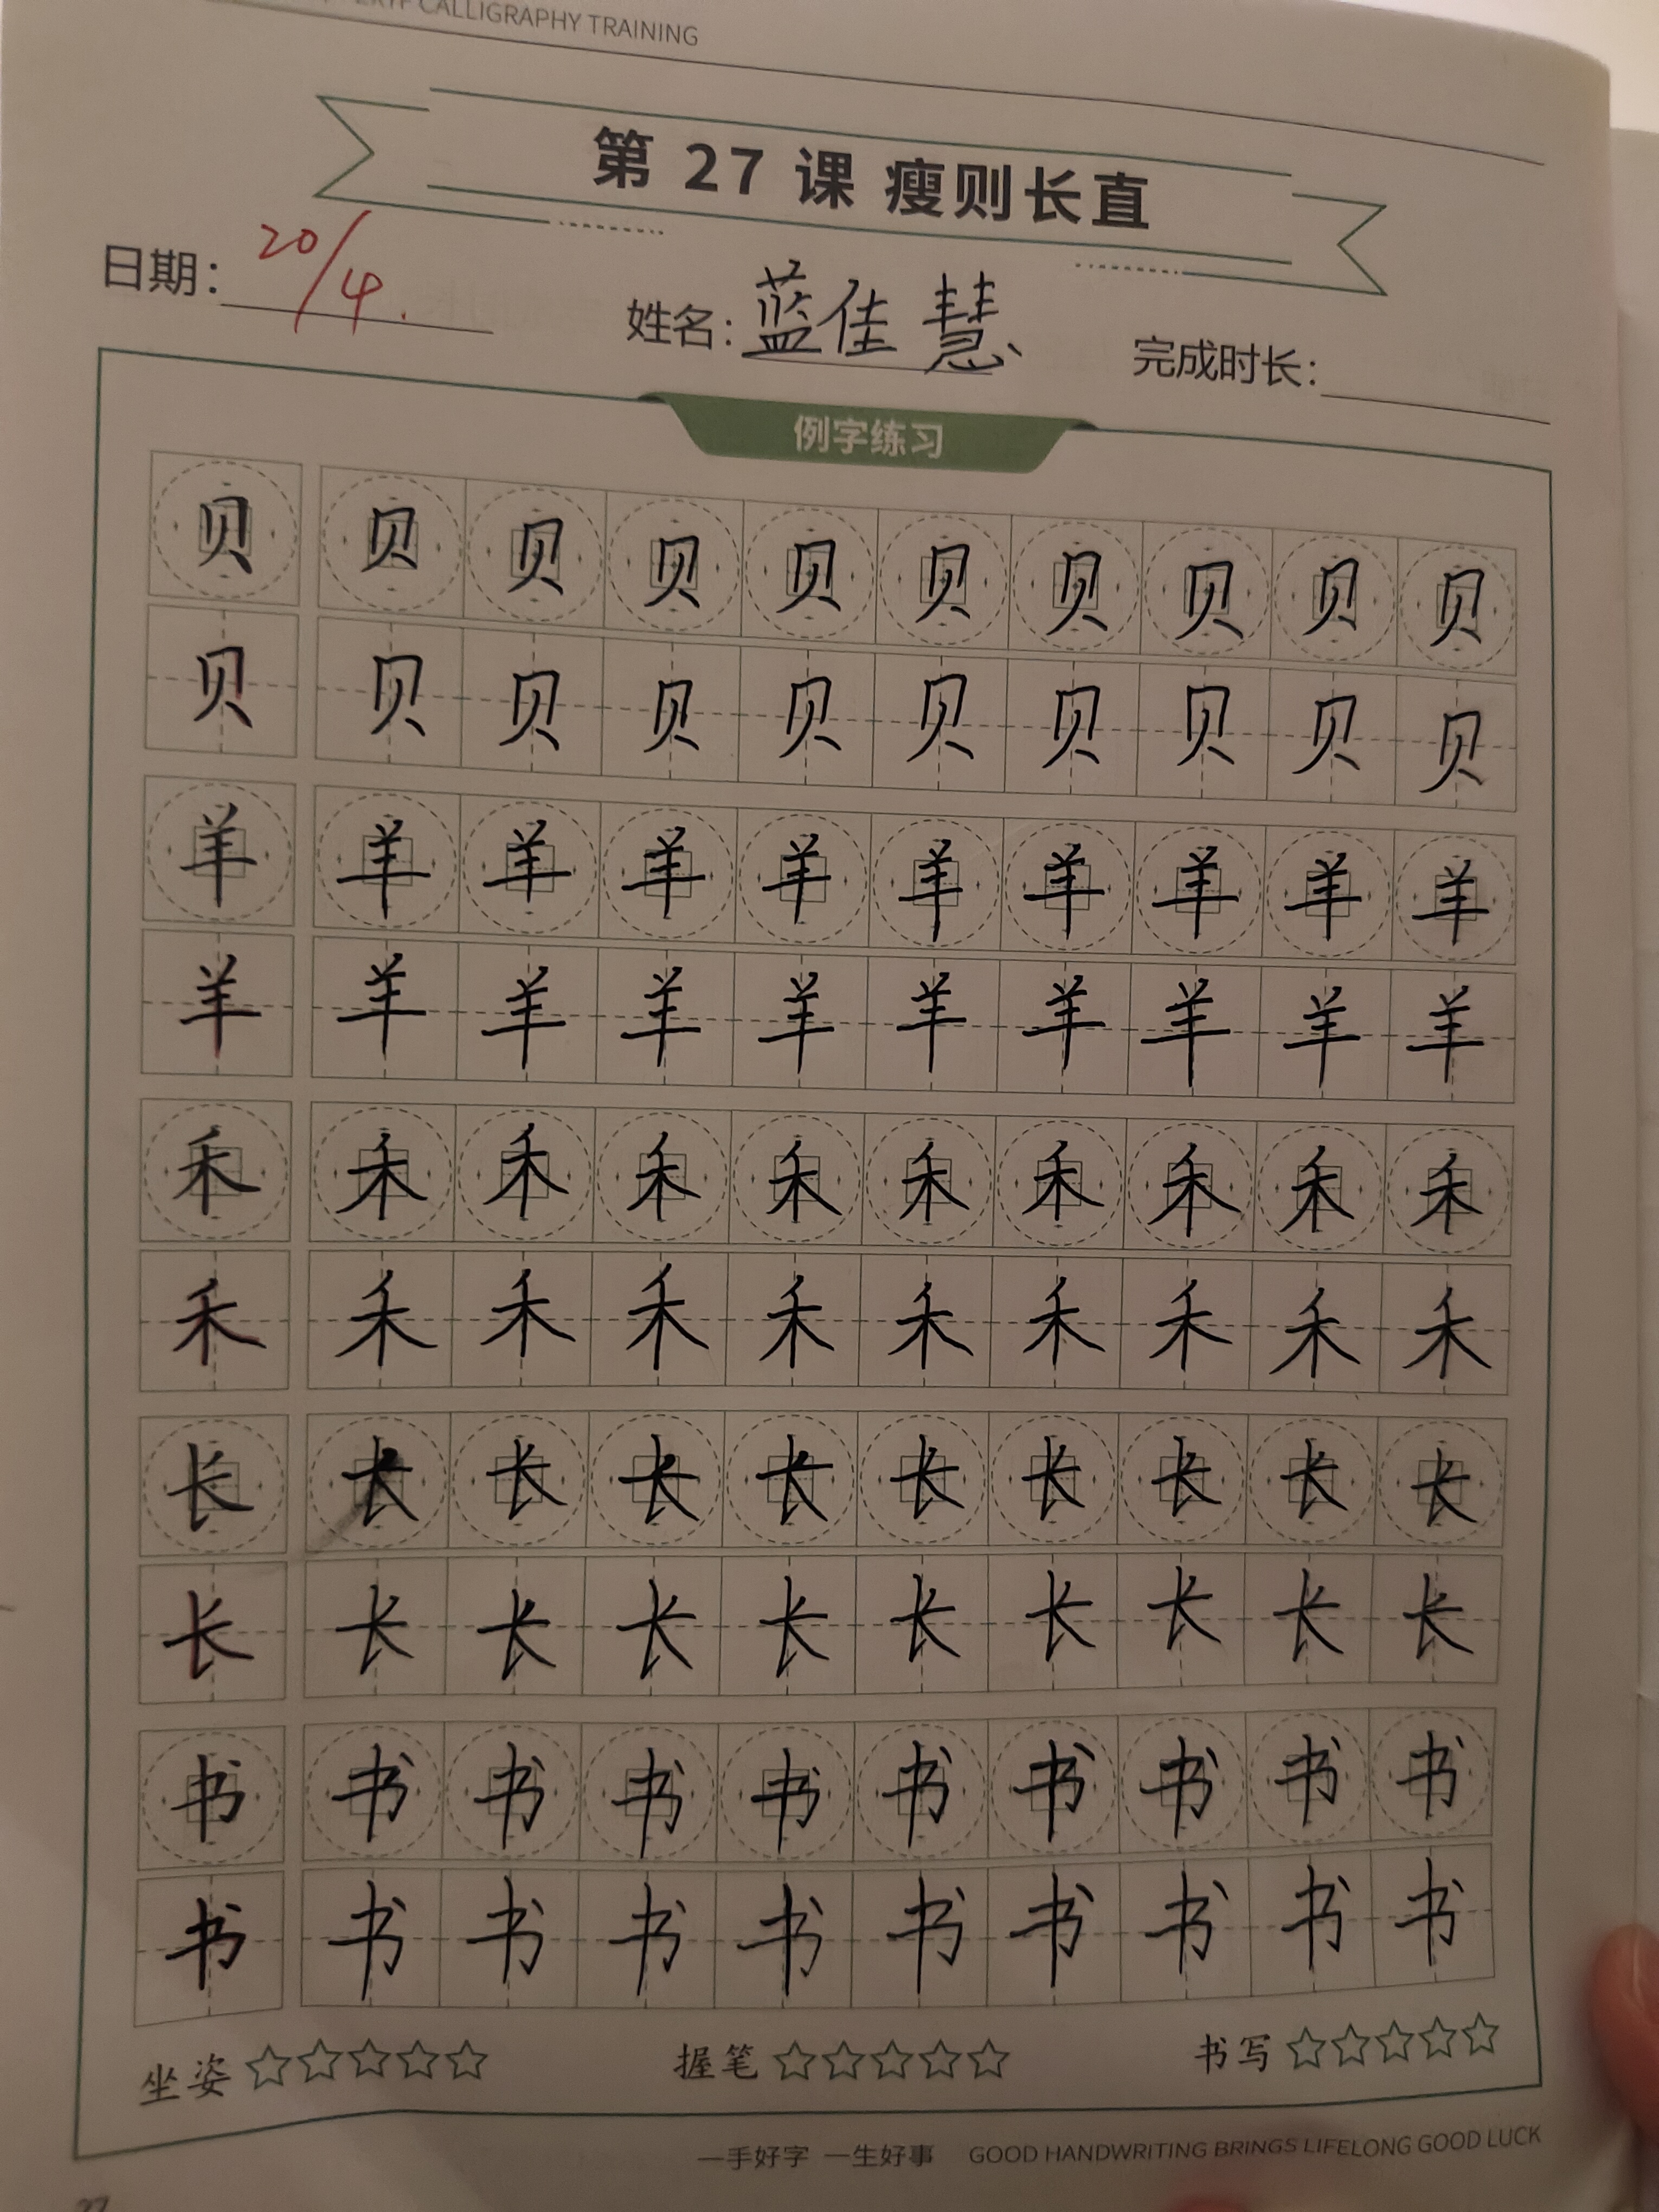 CALLIGRAPHY TRAINING
第 27 课 瘦则长直
日期: 20/4. 姓名: 蓝佳慧 完成时长:
例字练习
贝 贝 贝 贝 贝 贝 贝 贝 贝 贝
贝 贝 贝 贝 贝 贝 贝 贝 贝 贝
羊 羊 羊 羊 羊 羊 羊 羊 羊 羊
羊 羊 羊 羊 羊 羊 羊 羊 羊 羊
禾 禾 禾 禾 禾 禾 禾 禾 禾 禾
禾 禾 禾 禾 禾 禾 禾 禾 禾 禾
长 长 长 长 长 长 长 长 长 长
长 长 长 长 长 长 长 长 长 长
书 书 书 书 书 书 书 书 书 书
书 书 书 书 书 书 书 书 书 书
坐姿 ☆☆☆☆☆ 握笔 ☆☆☆☆☆ 书写 ☆☆☆☆☆
一手好字 一生好事 GOOD HANDWRITING BRINGS LIFELONG GOOD LUCK